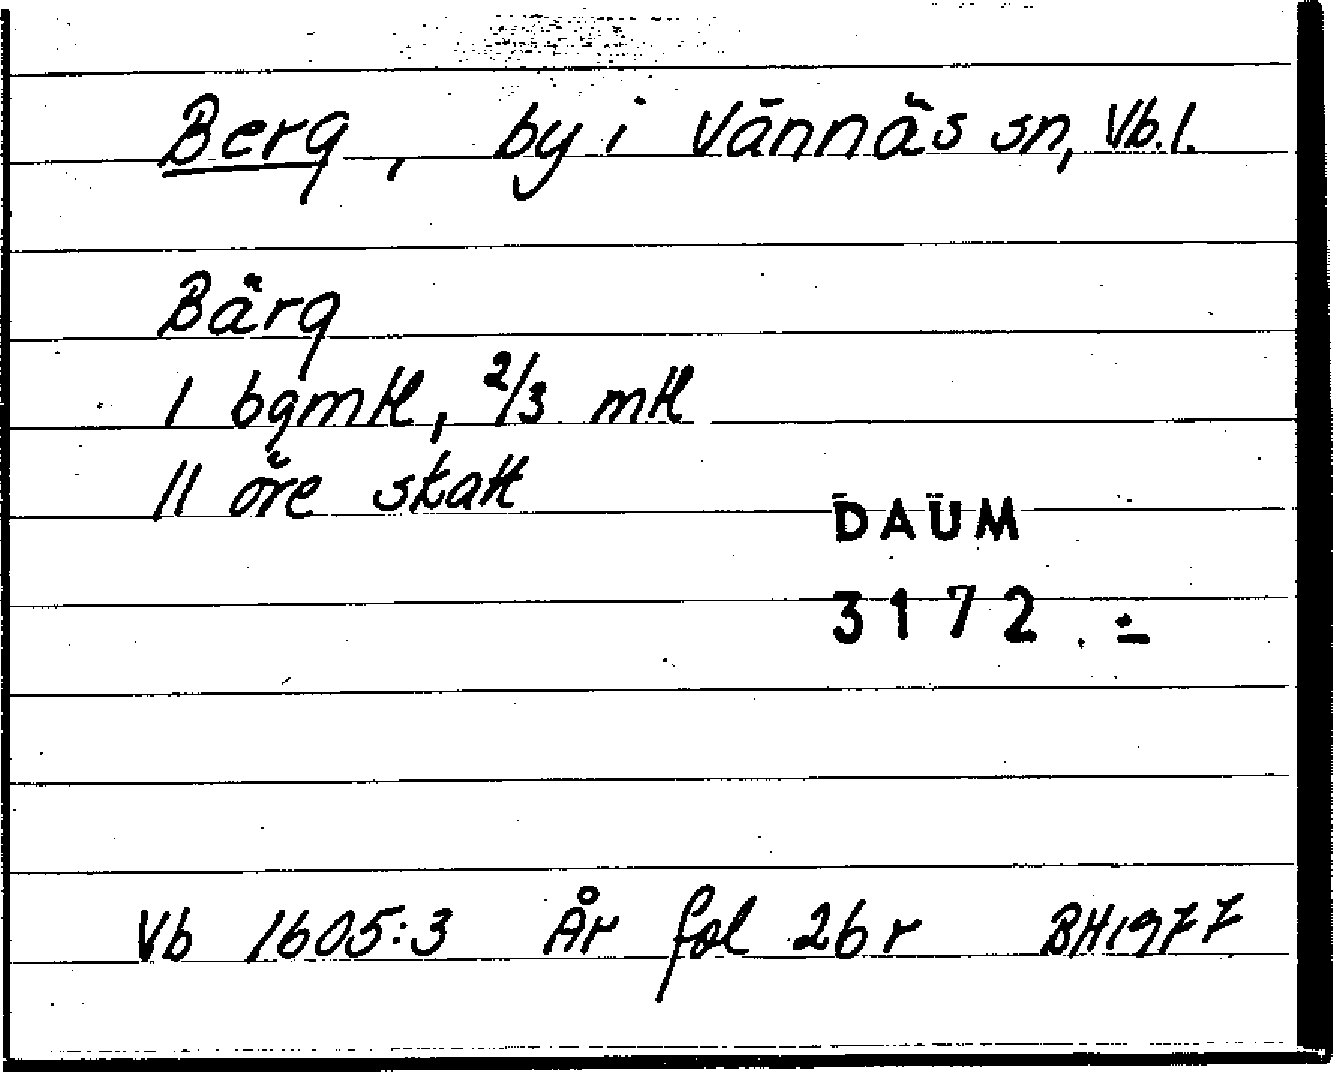 Berg, by i Vännäs sn, Vb.l.
Bärg
1 bgmtl, 2/3 mtl
11 öre skatt
DAUM
3172.
Vb 1605:3 År fol 26 r BH1977